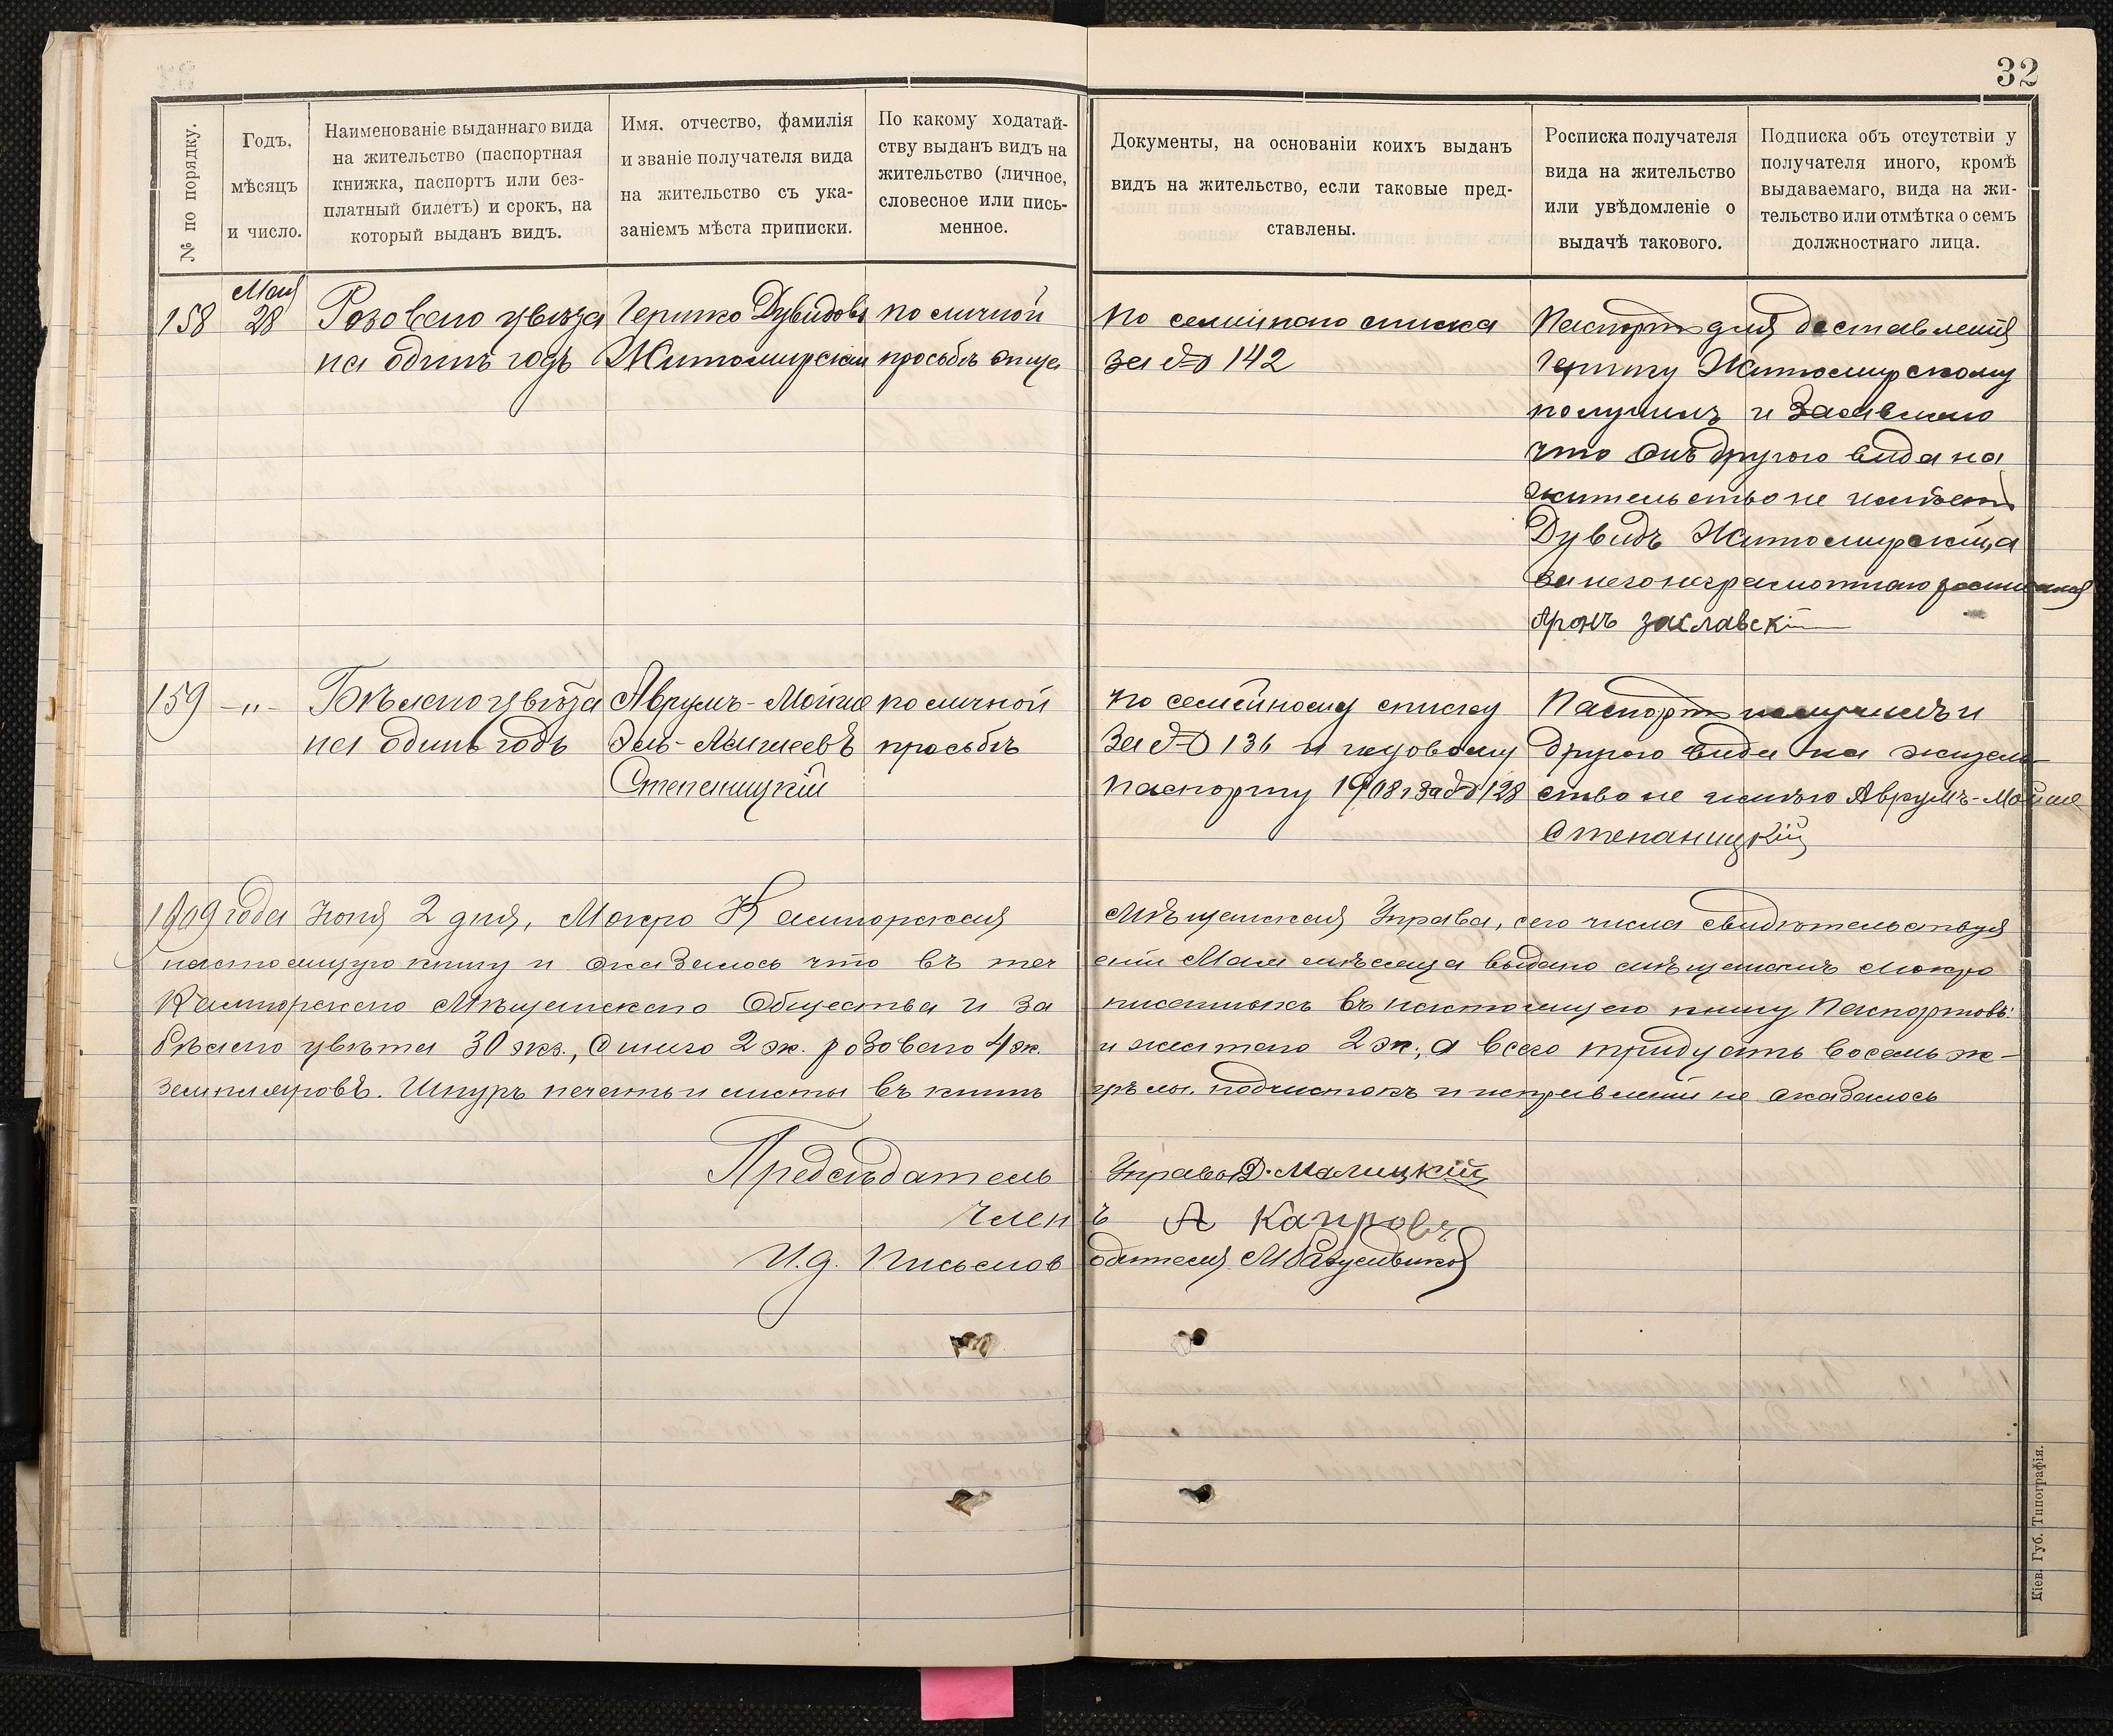 32
№ по порядку.
Годъ,
мѣсяцъ
и число.
Наименованіе выданнаго вида
на жительство (паспортная
книжка, паспортъ или без-
платный билетъ) и срокъ, на
который выданъ видъ.
Имя, отчество, фамилія
и званіе получателя вида
на жительство съ ука-
заніемъ мѣста приписки.
По какому ходатай-
ству выданъ видъ на
жительство (личное,
словесное или пись-
менное.
Документы, на основаніи коихъ выданъ
видъ на жительство, если таковые пред-
ставлены.
Росписка получателя
вида на жительство
или увѣдомленіе о
выдачѣ такового.
Подписка объ отсутствіи у
получателя иного, кромѣ
выдаваемаго, вида на жи-
тельство или отмѣтка о семъ
должностнаго лица.
158
Мая
28
Розоваго цвѣта
на одинъ годъ
Гершко Дувидовъ
Житомирскій
по личной
просьбѣ отца
по семейнаго списка
за № 142
Паспортъ для доставленія
Гершку Житомирскому
получилъ и Заявляю
что онъ другого вида на
жительство не имѣетъ
Дувидъ Житомирскій, а
за него неграмотнаго росписался
Аронъ Заславскій
159 -"-
Бѣлаго цвѣта
на одинъ годъ
Аврумъ-Мойше
Эль-Лейзеровъ
Степаницкій
по личной
просьбѣ
по семейному списку
за № 136 и годовому
паспорту 1908 г за № 128
Паспортъ получилъ и
другого вида на житель
ство не имѣю Аврумъ-Мойше
Степаницкій
1909 года Іюня 2 дня, Мокро Калигорская Мѣщанская Управа, сего числа свидѣтельствуя
настоящую книгу и оказалось что въ теченіи Мая мѣсяца выдано мѣщанамъ Мокро
Калигорскаго Мѣщанскаго Общества и записанныхъ въ настоящую книгу Паспортовъ:
бѣлаго цвѣта 30 экз., Синяго 2 эк. розоваго 4 эк. и желтаго 2 эк., а всего тридцать восемь эк-
земпляровъ. Шнуръ печать и листы въ книгѣ цѣлы. подчистокъ и исправленій не оказалось
Предсѣдатель Управы Д. Малицкій
Членъ А Капровъ
И.д. Письмоводителя М
Кіев. Губ. Типографія.